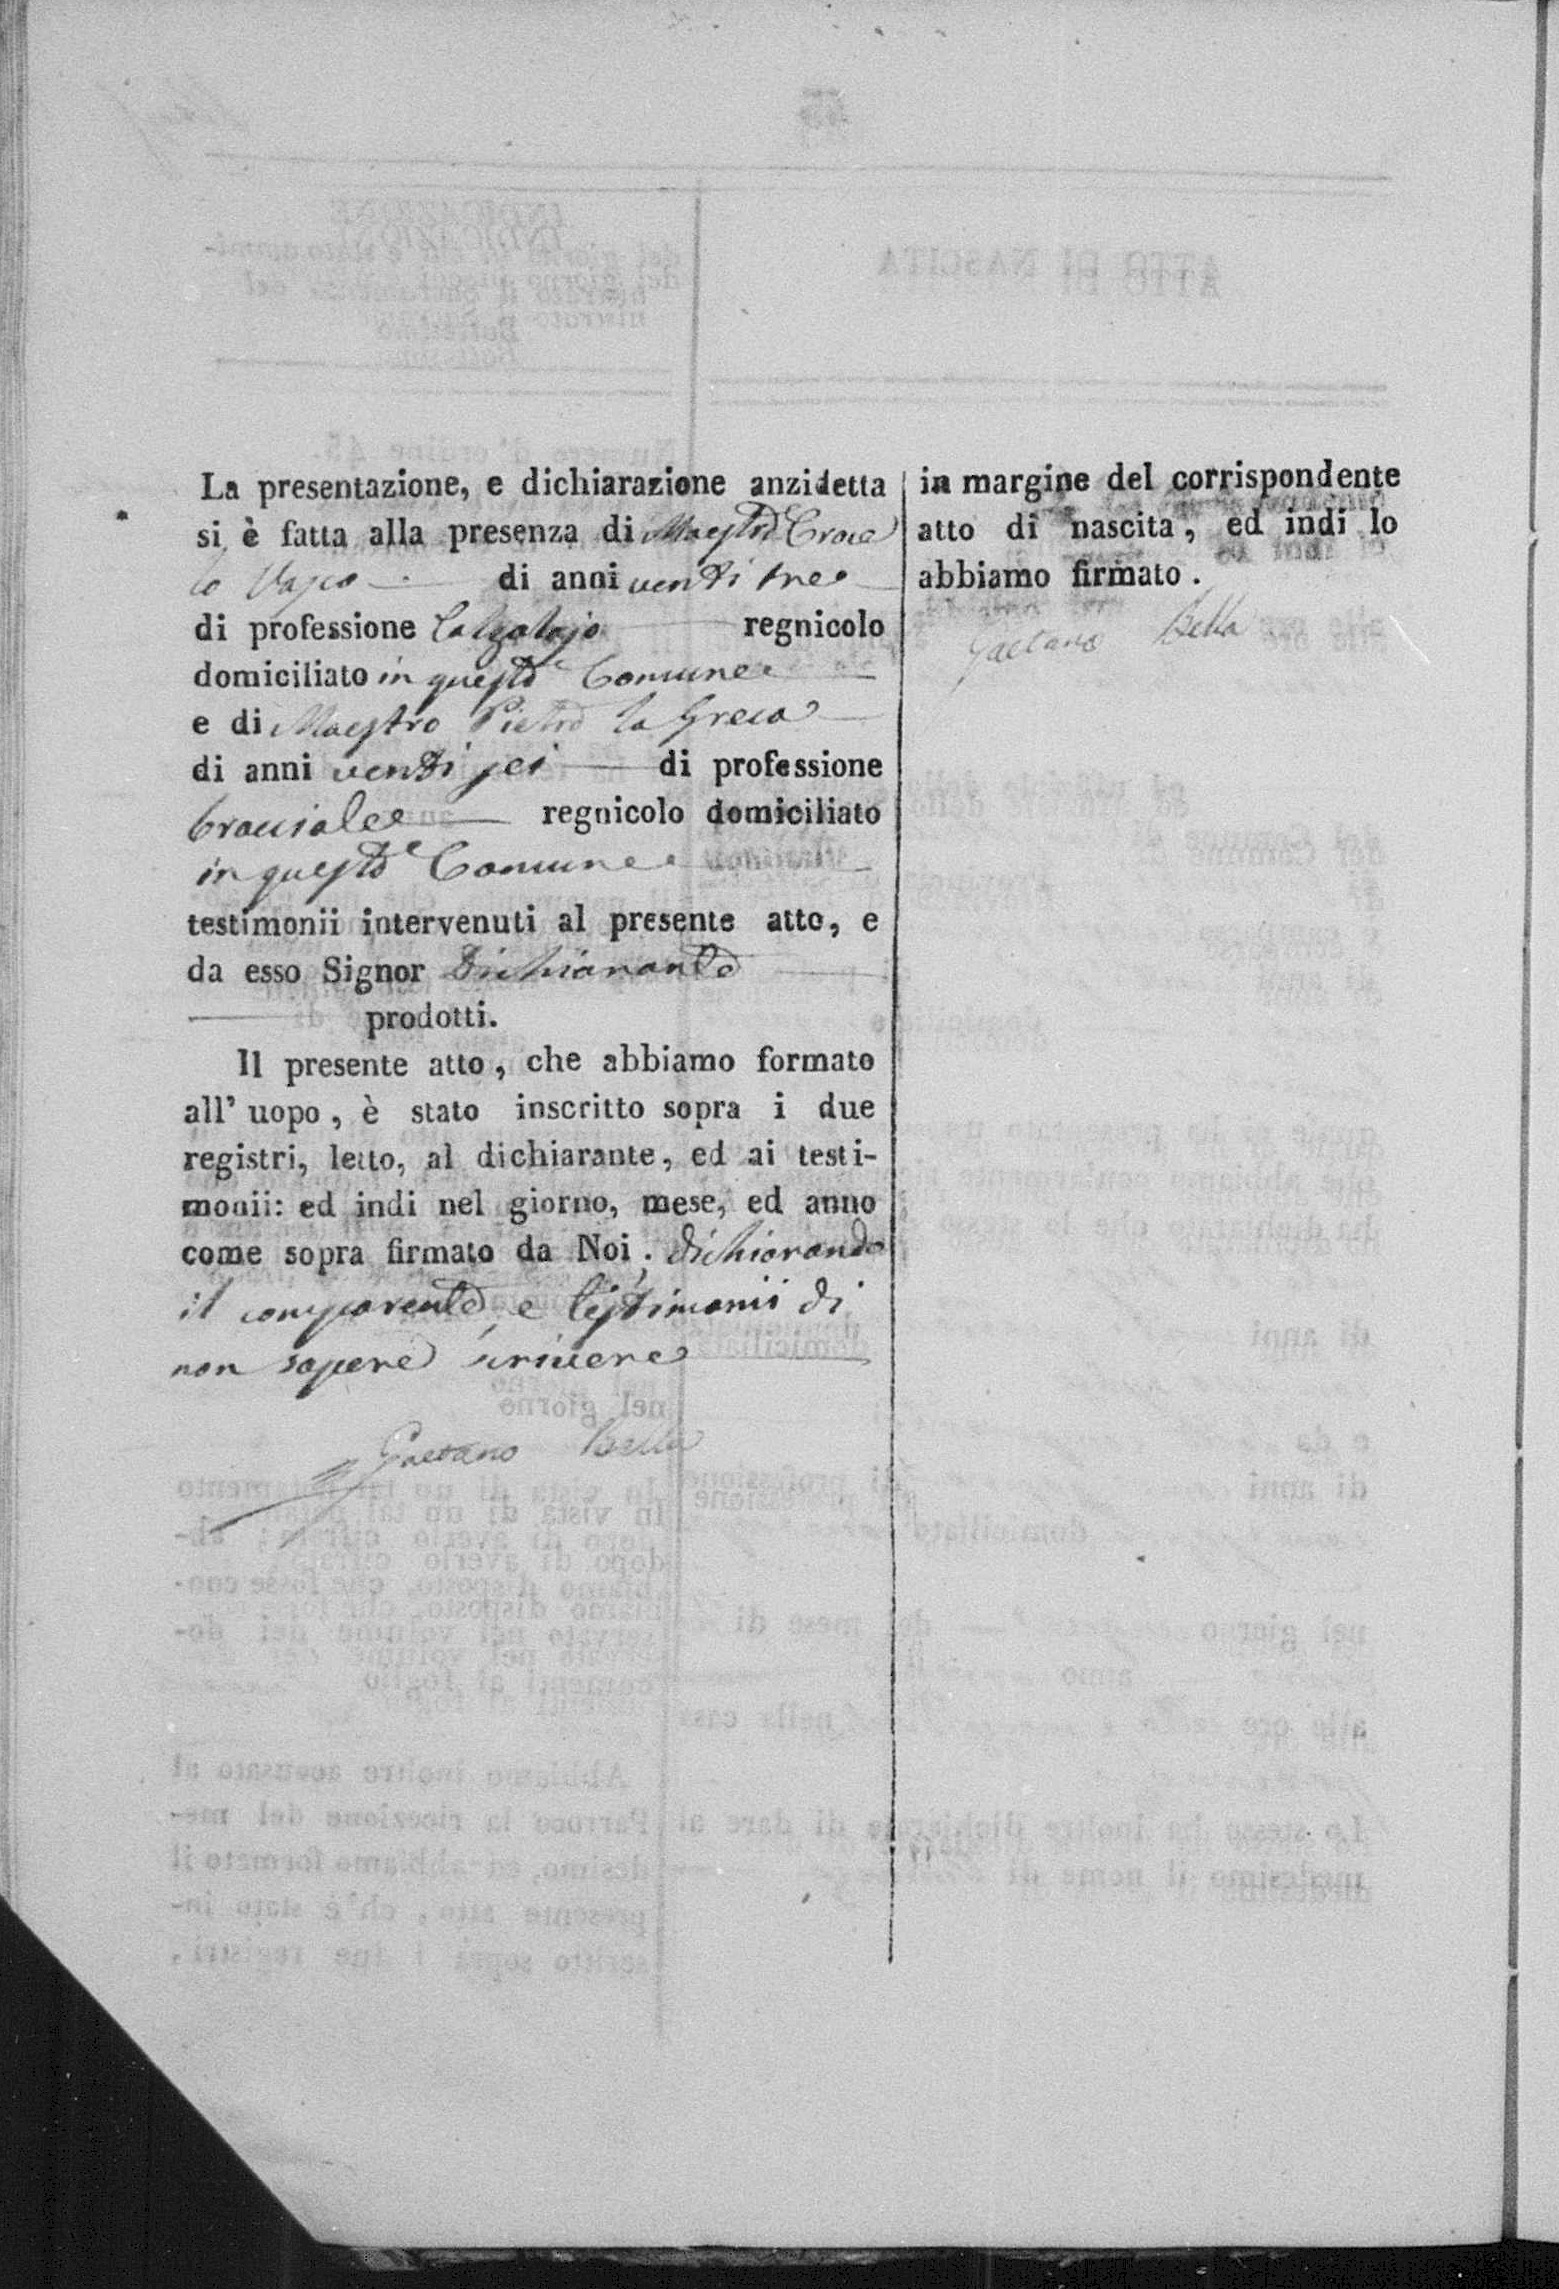 La presentazione, e dichiarazione anzidetta
si è fatta alla presenza di Maestro Croce
lo Vasco di anni venti tre
di professione Calzolajo regnicolo
domiciliato in questo Comune
e di Maestro Pietro la Greca
di anni venti sei di professione
bracciale regnicolo domiciliato
in questo Comune
testimonii intervenuti al presente atto, e
da esso Signor Dichiarante
prodotti.
Il presente atto, che abbiamo formato
all' uopo, è stato inscritto sopra i due
registri, letto, al dichiarante, ed ai testi-
monii: ed indi nel giorno, mese, ed anno
come sopra firmato da Noi, dichiarando
il comparente, e testimonii di
non sapere scrivere
Gaetano Bella
in margine del corrispondente
atto di nascita, ed indi lo
abbiamo firmato.
Gaetano Bella